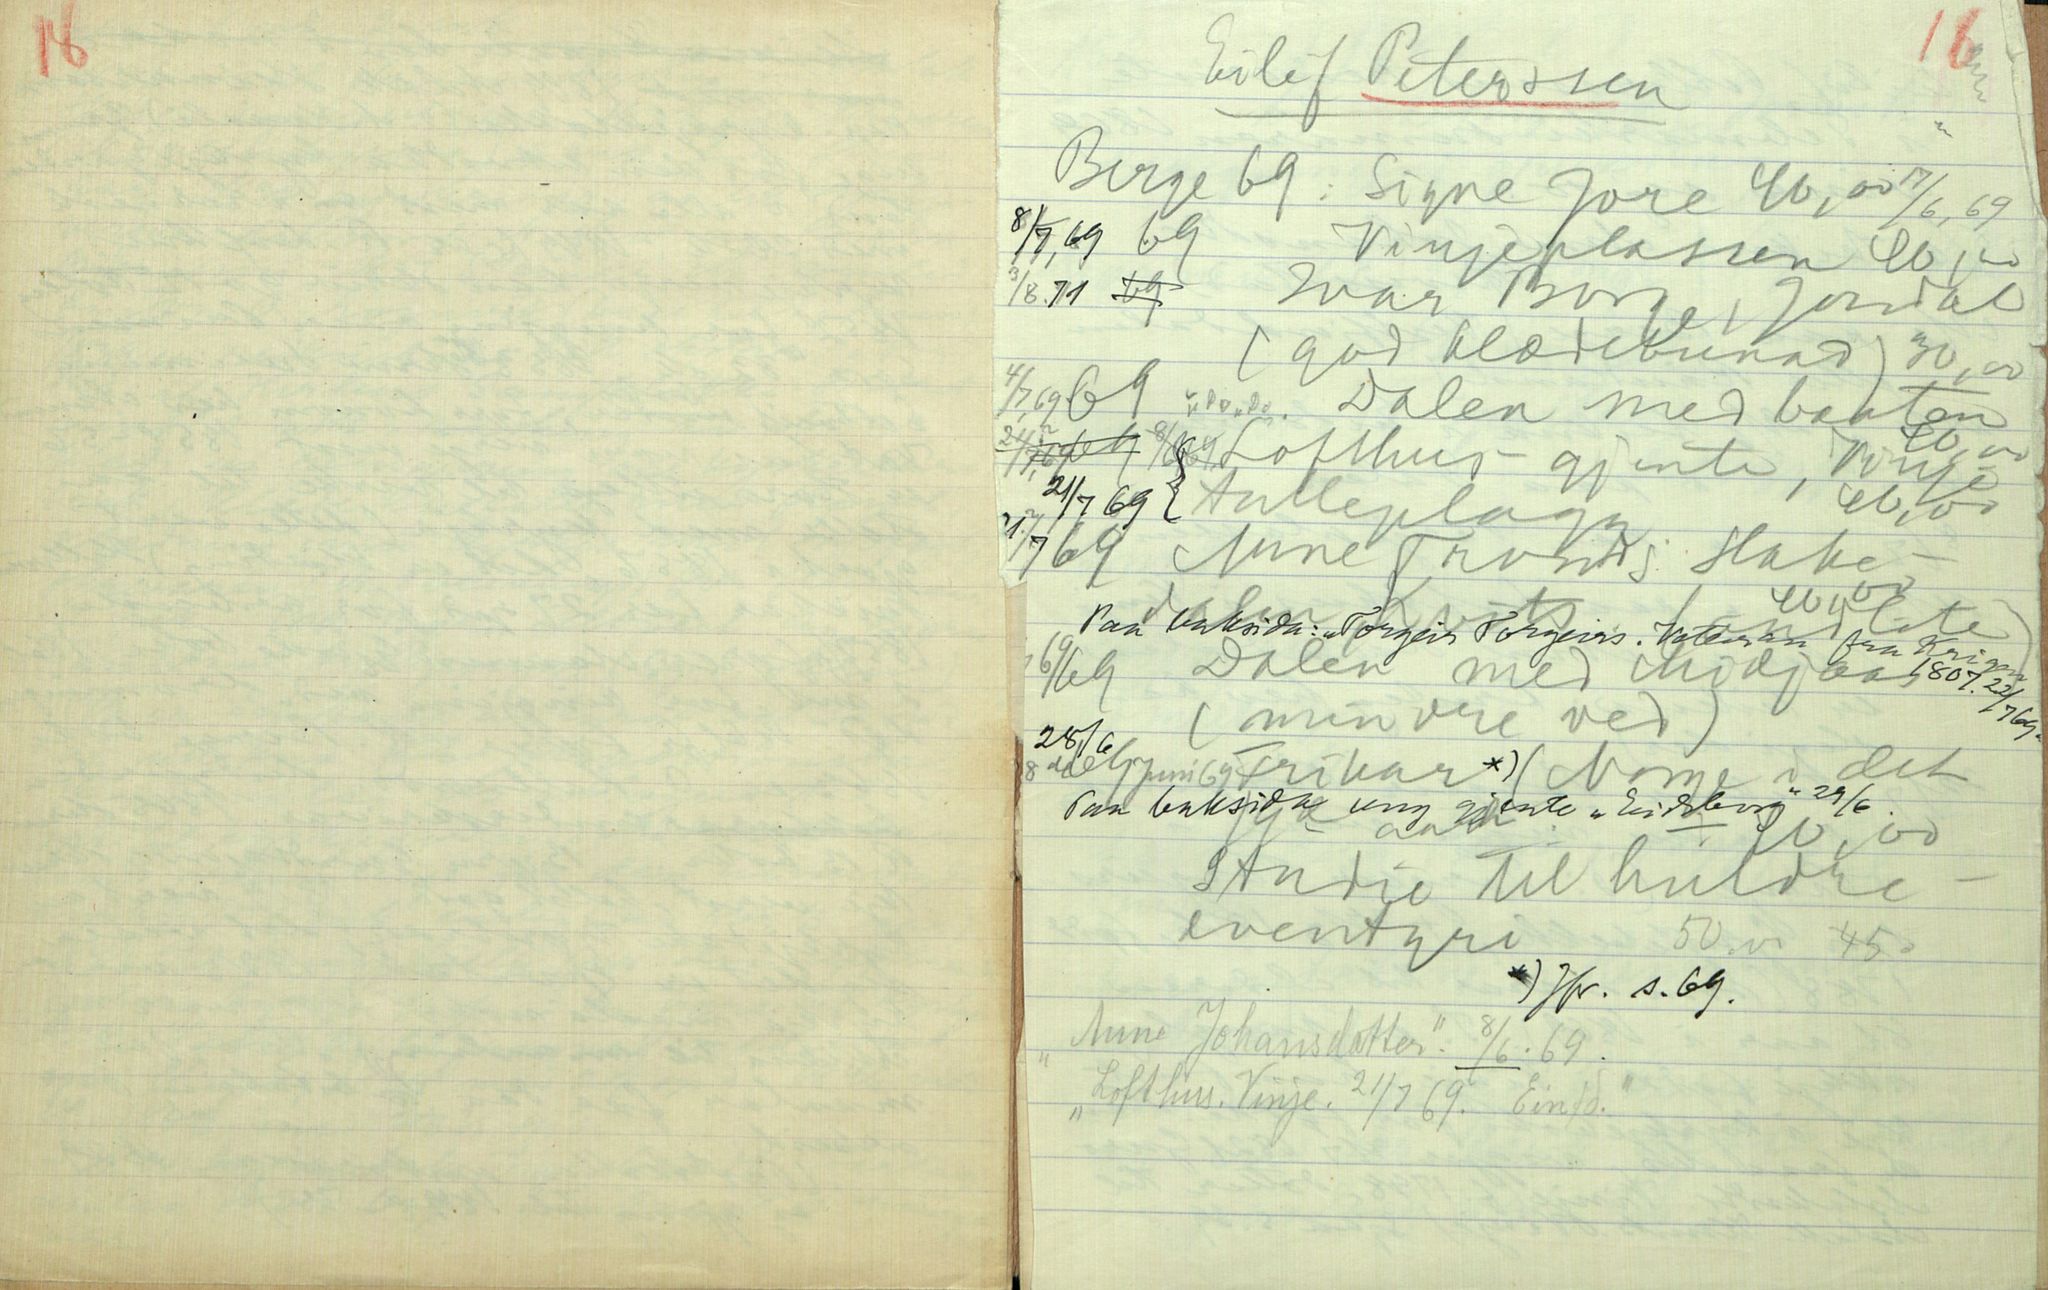 16
16
Eilef Peterssen
Berge 69: Signe Jore 40,00 17/6, 69
8/7, 69 69 Vinjeplassen 40,00
3/8. 71 69 Ivar Berge, Jordal
(god klædebunad) 30,00
4/7, 69 69 Dalen med bautaen
40,00
69 8/6 69. Lofthus-gjente, Vinje
21/7 69 { 40,00
21/7 69 Anne Tronds. Hake-
40,00
Paa baksida: „Torgeir Torgeirs. Veteran fra Krigen
1807. 22/7 69"
69 Dalen med
(mindre ved)
28/6
juni 69 Frikar *) (Norge i det
Paa baksida ung gjente „Eidsborg" 29/6.
Studie til huldre-
eventyri 50.00 45.
*) Jfr. s. 69.
„Anne Johansdotter". 8/6. 69.
„Lofthus. Vinje. 21/7 69.